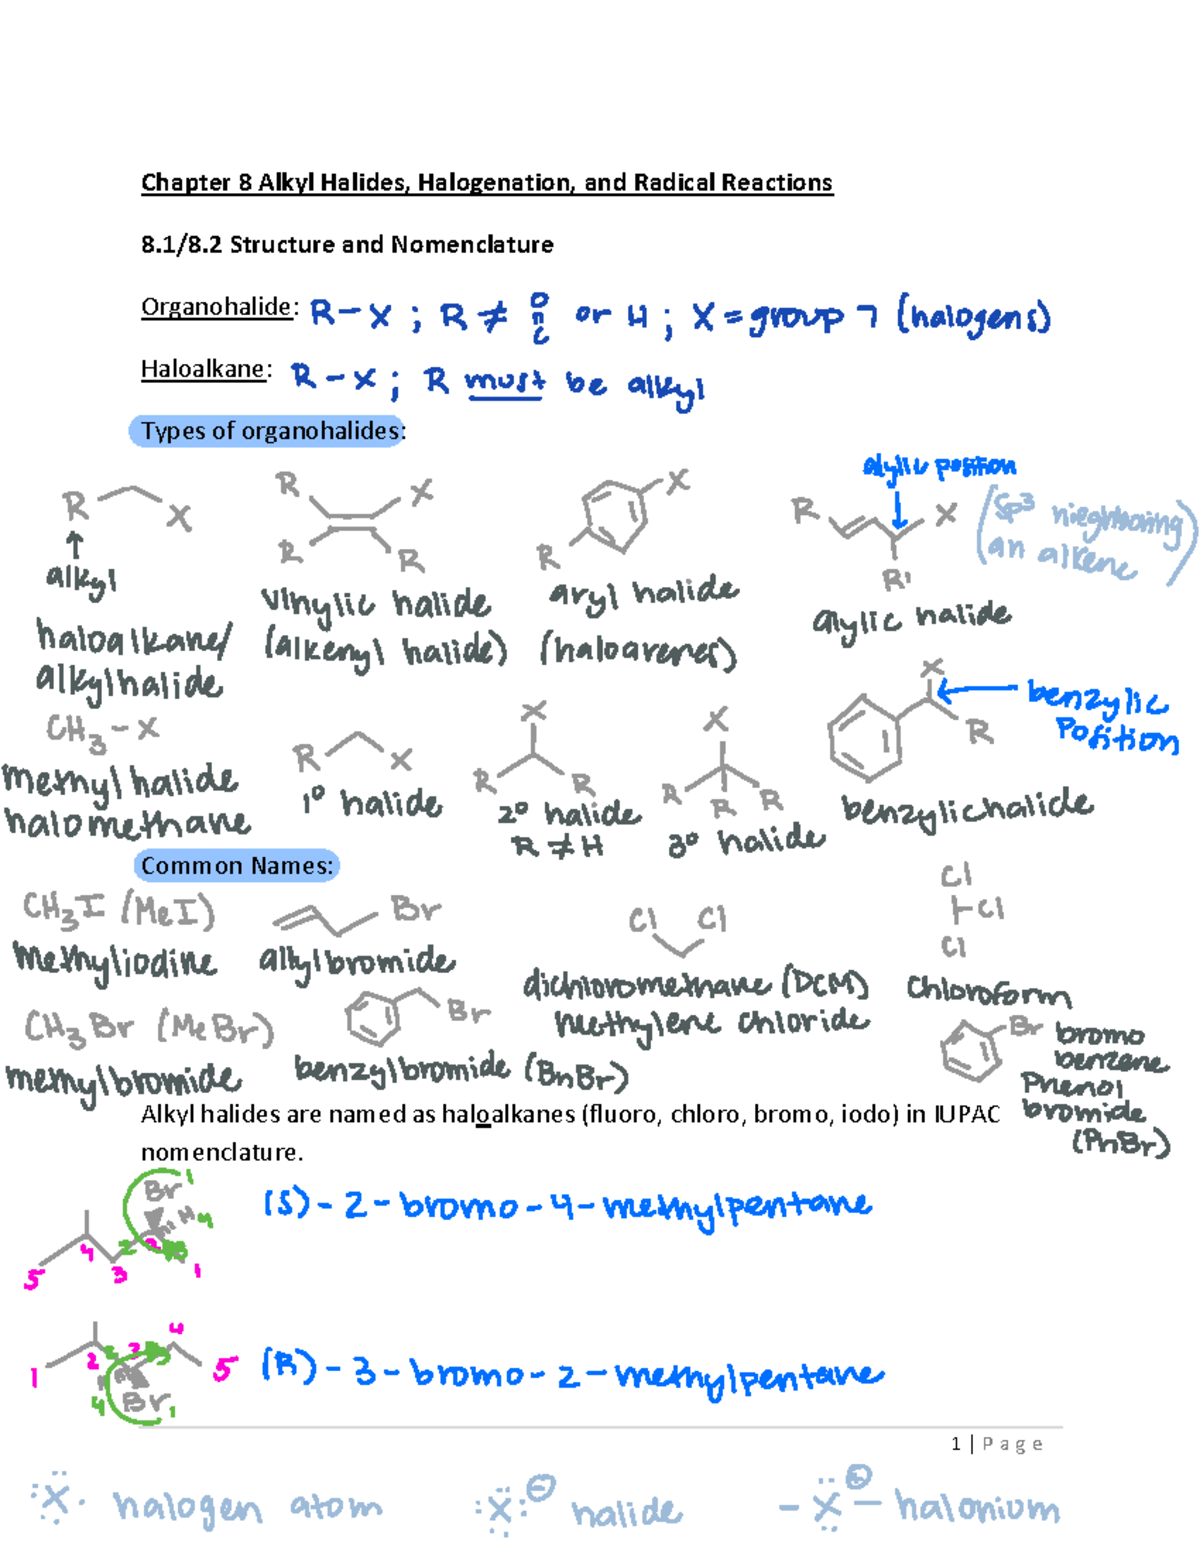 Chapter 8 Alkyl Halides, Halogenation, and Radical Reactions
8.1/8.2 Structure and Nomenclature
Organohalide: R-X ; R ≠ O=C or H ; X = group 7 (halogens)
Haloalkane: R-X ; R must be alkyl
Types of organohalides:
alylic position
R X
R X R R
X R
R X R'
(sp3 nieghboring
an alkene)
alkyl
vinylic halide
(alkenyl halide)
aryl halide
(haloarenes)
alylic halide
haloalkane/
alkylhalide
CH3-X
methyl halide
halomethane
R X
1° halide
X R R
2° halide
R ≠ H
X R R R
3° halide
X R
benzylic
position
benzylichalide
Common Names:
CH3I (MeI)
methyliodine
Br
allylbromide
Cl Cl
dichloromethane (DCM)
methylene chloride
Cl
Cl
Cl
Chloroform
CH3Br (MeBr)
methylbromide
Br
benzylbromide (BnBr)
Br bromo
benzene
Phenol
bromide
(PhBr)
Alkyl halides are named as haloalkanes (fluoro, chloro, bromo, iodo) in IUPAC
nomenclature.
Br 1 H 4
5 4 3 2 2 3 1
(S)-2-bromo-4-methylpentane
1 2 2 3 3 4 5
4 H Br 1
(R)-3-bromo-2-methylpentane
1 | Page
:X· halogen atom
:X:⊖ halide
-X⊕- halonium